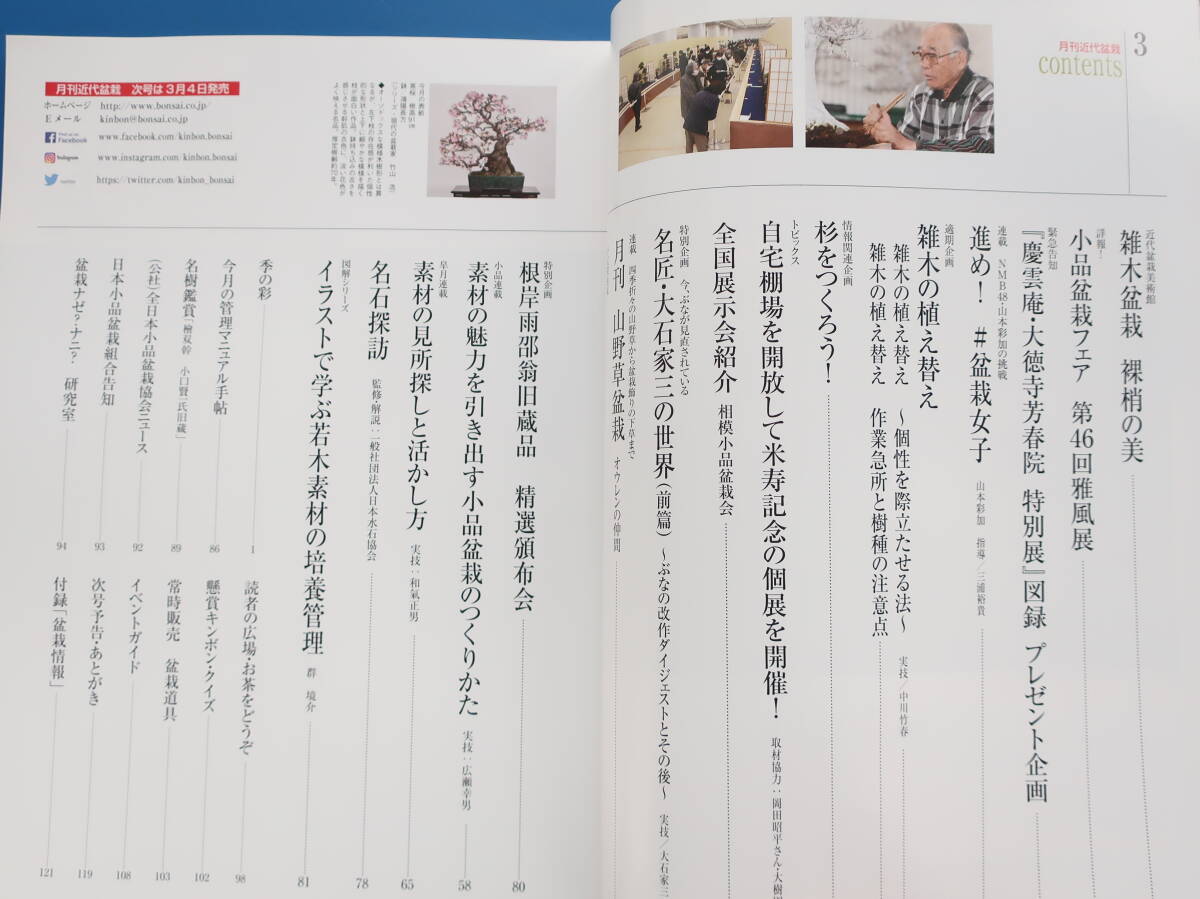 月刊近代盆栽
contents
3
近代盆栽美術館
雑木盆栽 裸梢の美
詳報!
小品盆栽フェア 第46回雅風展
緊急告知
『慶雲庵・大徳寺芳春院 特別展』図録 プレゼント企画
連載 NMB48・山本彩加の挑戦
進め! #盆栽女子 山本彩加 指導/三浦裕貴
適期企画
雑木の植え替え
雑木の植え替え ~個性を際立たせる法~ 実技/中川竹春
雑木の植え替え 作業急所と樹種の注意点
情報関連企画
杉をつくろう!
トピックス
自宅棚場を開放して米寿記念の個展を開催! 取材協力:岡田昭平さん・大樹
全国展示会紹介 相模小品盆栽会
特別企画 今、ぶなが見直されている
名匠・大石家三の世界(前篇) ~ぶなの改作ダイジェストとその後~ 実技/大石家三
連載 四季折々の山野草から盆栽飾りの下草まで
月刊 山野草盆栽 オウレンの仲間
月刊近代盆栽 次号は3月4日発売
ホームページ http://www.bonsai.co.jp/
Eメール kinbon@bonsai.co.jp
Facebook www.facebook.com/kinbon.bonsai
Instagram www.instagram.com/kinbon.bonsai
twitter https://twitter.com/kinbon_bonsai
今月の表紙
寒桜 樹高91cm
特別企画
根岸雨邵翁旧蔵品 精選頒布会 80
小品連載
素材の魅力を引き出す小品盆栽のつくりかた 実技:広瀬幸男 58
皐月連載
素材の見所探しと活かし方 実技:和氣正男 65
名石探訪 監修・解説:一般社団法人日本水石協会 78
図解シリーズ
イラストで学ぶ若木素材の培養管理 群 境介 81
季の彩 1
今月の管理マニュアル手帖 86
名樹鑑賞「檜双幹 小口賢一氏旧蔵」 89
(公社)全日本小品盆栽協会ニュース 92
日本小品盆栽組合告知 93
盆栽ナゼ?・ナニ? 研究室 94
読者の広場・お茶をどうぞ 98
懸賞キンボン・クイズ 102
常時販売 盆栽道具 103
イベントガイド 108
次号予告・あとがき 119
付録「盆栽情報」 121